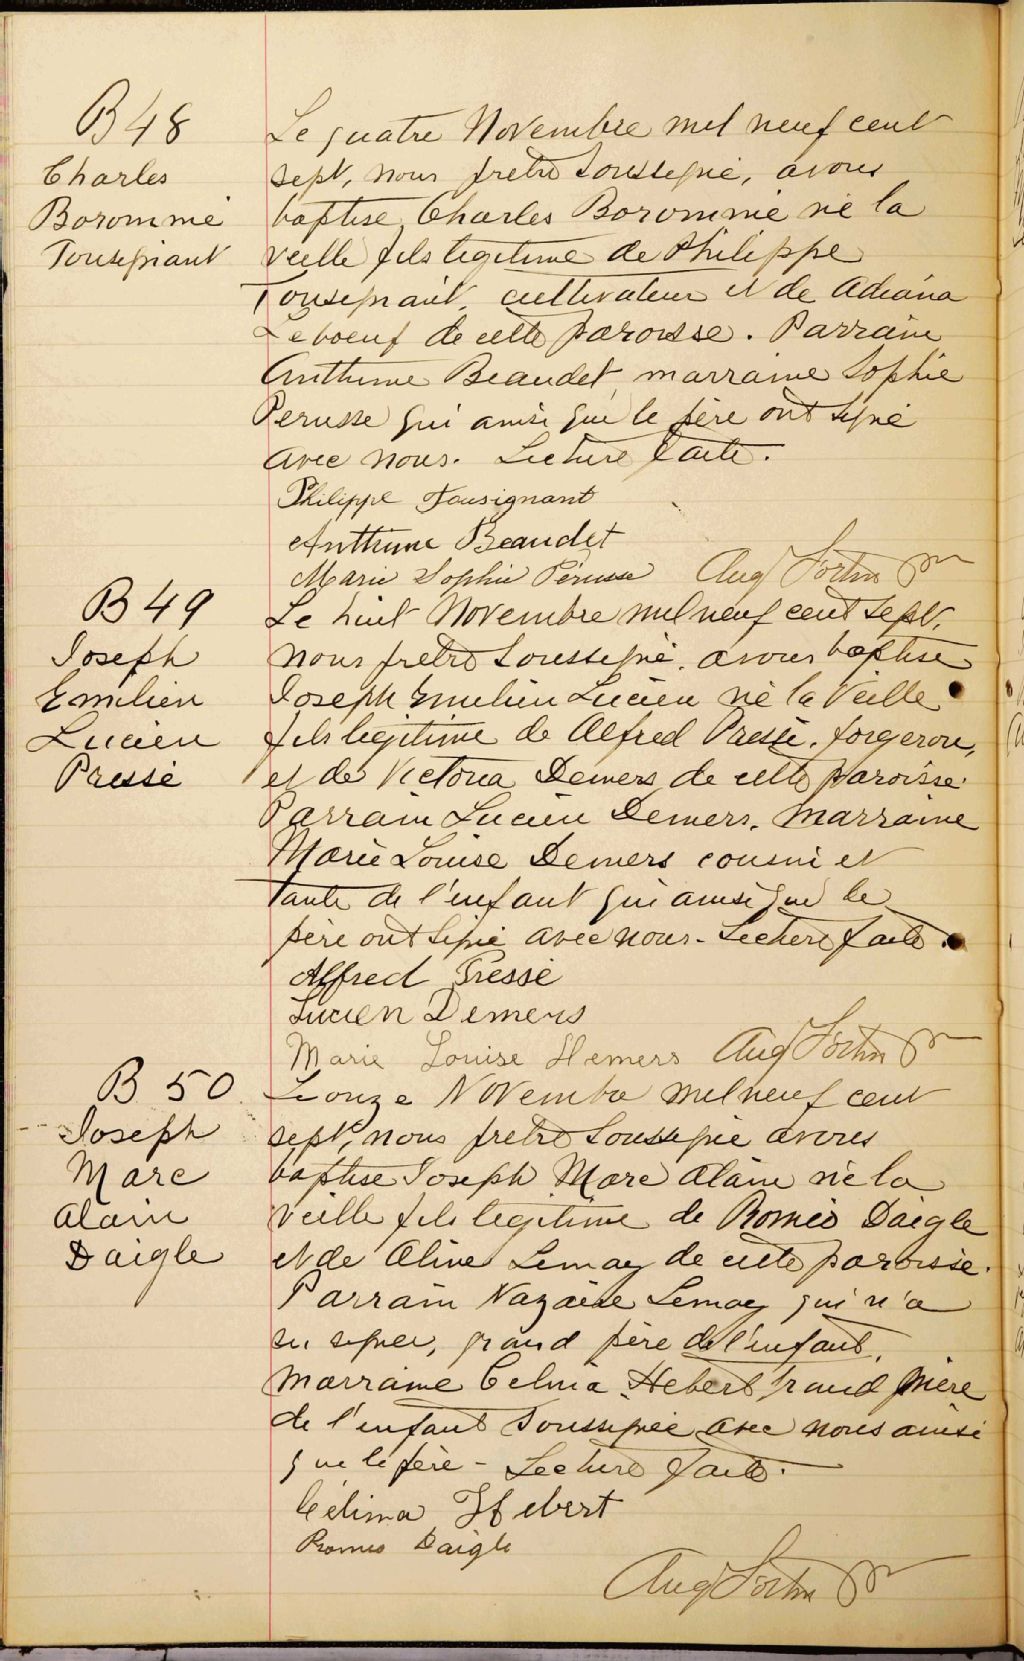 B 48
Charles
Borommé
Tousignant
Le quatre Novembre mil neuf cent
sept, nous prêtre soussigné, avons
baptisé Charles Borommé né la
veille fils légitime de Philippe
Tousignant, cultivateur et de Adriana
Leboeuf de cette paroisse. Parrain
Anthime Beaudet marraine Sophie
Perusse qui ainsi que le père ont signé
avec nous. Lecture faite.
Philippe Tousignant
Anthime Beaudet
Marie Sophie Pérusse Aug Fortin ptr
B 49
Joseph
Emilien
Lucien
Pressé
Le huit Novembre mil neuf cent sept,
nous prêtre soussigné, avons baptisé
Joseph Emilien Lucien né la veille
fils légitime de Alfred Pressé, forgeron,
et de Victoria Demers de cette paroisse.
Parrain Lucien Demers, marraine
Marie Louise Demers cousin et
tante de l'enfant qui ainsi que le
père ont signé avec nous - Lecture faite.
Alfred Pressé
Lucien Demers
Marie Louise Demers Aug Fortin ptr
B 50
Joseph
Marc
Alain
Daigle
Le onze Novembre mil neuf cent
sept, nous prêtre soussigné avons
baptisé Joseph Marc Alain né la
veille fils légitime de Roméo Daigle
et de Aline Lemay de cette paroisse.
Parrain Nazaire Lemay qui n'a
su signer, grand père de l'enfant,
marraine Celina Hebert grand mère
de l'enfant soussignée avec nous ainsi
que le père - Lecture faite.
Célima Hebert
Romeo Daigle
Aug Fortin ptr